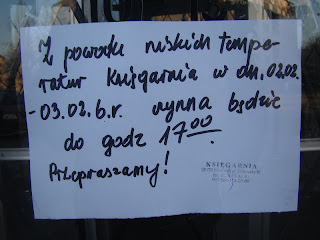 Z powodu niskich tempe-
ratur księgarnia w dn. 02.02.
-03.02.b.r. czynna będzie
do godz 17⁰⁰.
Przepraszamy!
KSIĘGARNIA